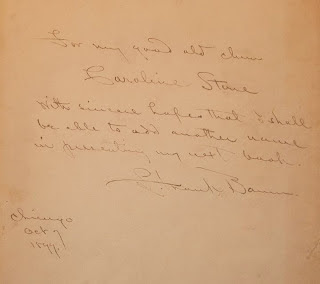 For my good old chum
Caroline Stane
With sincere hopes that I shall
be able to add another name
in presenting my next book.
L. Frank Baum.
Chicago
Oct 7
1899.